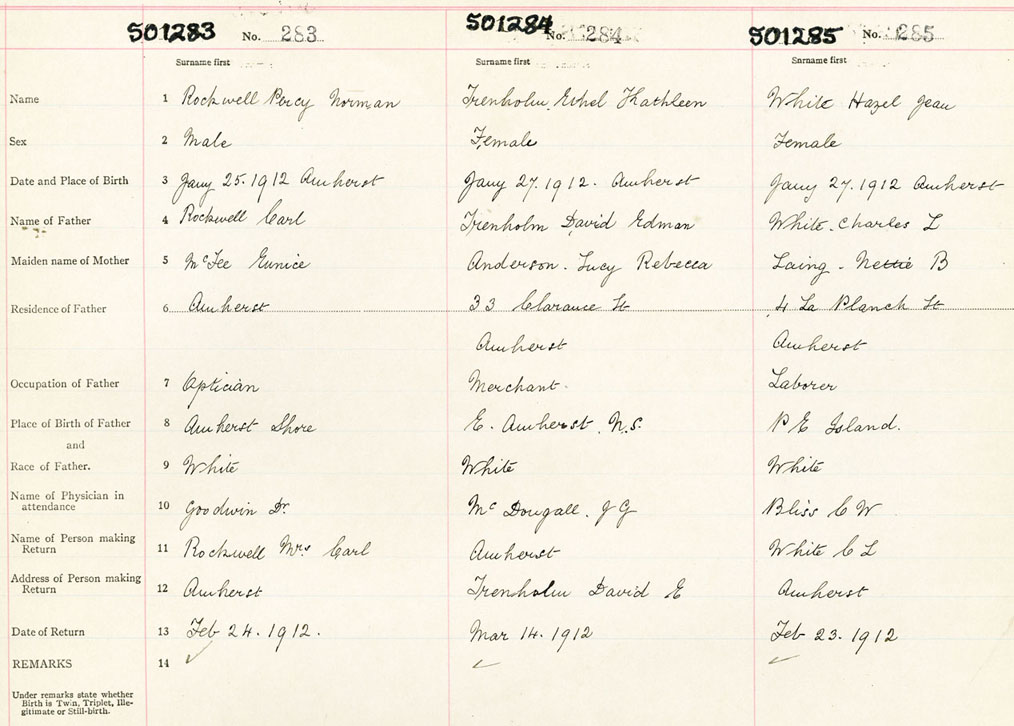 501283 No. 283 501284 No. 284 501285 No. 285
Surname first Surname first Surname first
Name 1 Rockwell Percy Norman Trenholm, Ethel Kathleen White Hazel Jean
Sex 2 Male Female Female
Date and Place of Birth 3 Jany 25. 1912 Amherst Jany 27. 1912. Amherst Jany 27. 1912 Amherst
Name of Father 4 Rockwell Carl Trenholm David Edman White. Charles L
Maiden name of Mother 5 McFee Eunice Anderson. Lucy Rebecca Laing - Nettie B
Residence of Father 6 Amherst 33 Clarance St 4 La Planch St
Amherst Amherst
Occupation of Father 7 Optician Merchant. Laborer
Place of Birth of Father 8 Amherst Shore E. Amherst, N.S. P E Island.
and
Race of Father. 9 White White White
Name of Physician in
attendance 10 Goodwin Dr. McDougall. J G Bliss C W
Name of Person making
Return 11 Rockwell Mrs Carl Amherst White C L
Address of Person making
Return 12 Amherst Trenholm David E Amherst
Date of Return 13 Feb 24. 1912. Mar 14. 1912 Feb 23. 1912
REMARKS 14
Under remarks state whether
Birth is Twin, Triplet, Ille-
gitimate or Still-birth.